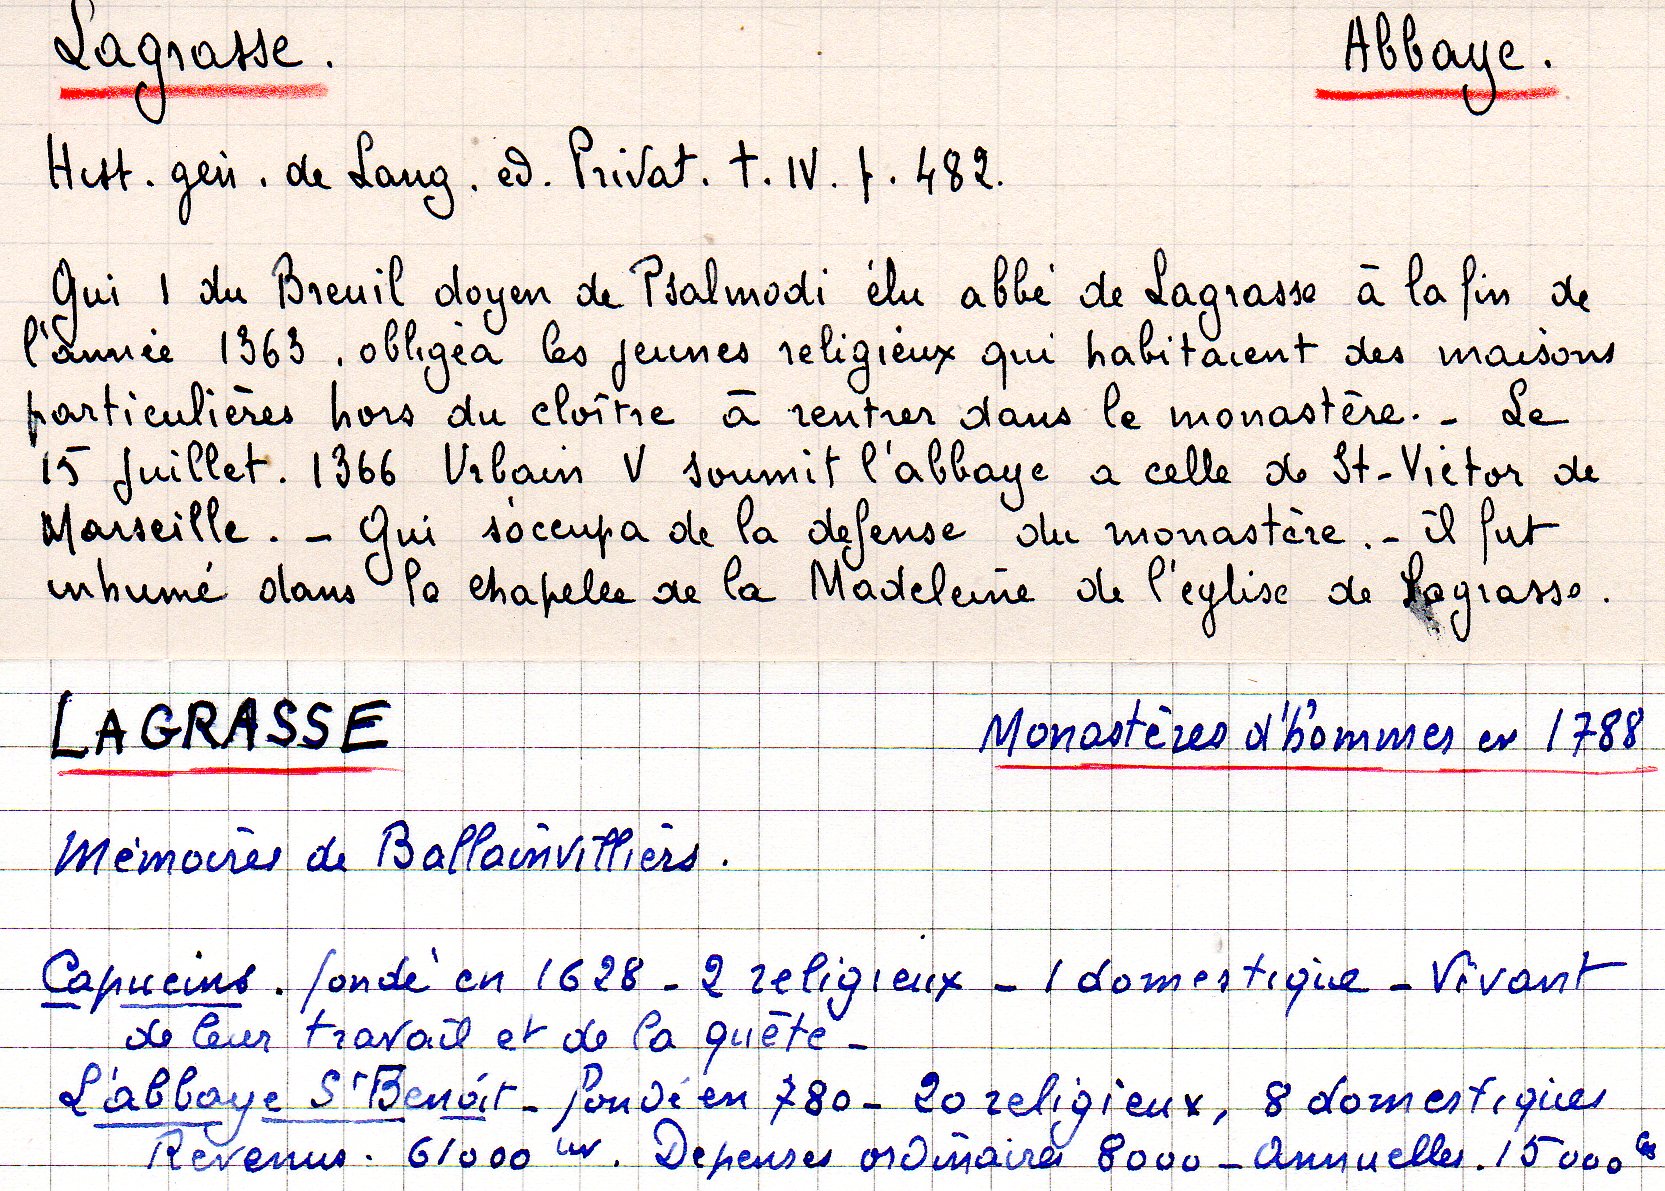 Lagrasse. Abbaye.
Hist. gén. de Lang. ed. Privat. t. IV. p. 482.
Gui I du Breuil doyen de Psalmodi élu abbé de Lagrasse à la fin de
l'année 1363, obligea les jeunes religieux qui habitaient des maisons
particulières hors du cloître à rentrer dans le monastère. - Le
15 juillet. 1366 Urbain V soumit l'abbaye a celle de St-Victor de
Marseille. - Gui s'occupa de la defense du monastère. - il fut
inhumé dans la chapelle de la Madeleine de l'église de Lagrasse.
LAGRASSE Monastères d'hommes en 1788
Mémoires de Ballainvilliers.
Capucins. fondé en 1628 - 2 religieux - 1 domestique - Vivant
de leur travail et de la quête -
L'abbaye St Benoit - fondé en 780 - 20 religieux, 8 domestiques
Revenus. 61000 liv. Depenses ordinaires 8000 - Annuelles. 15000